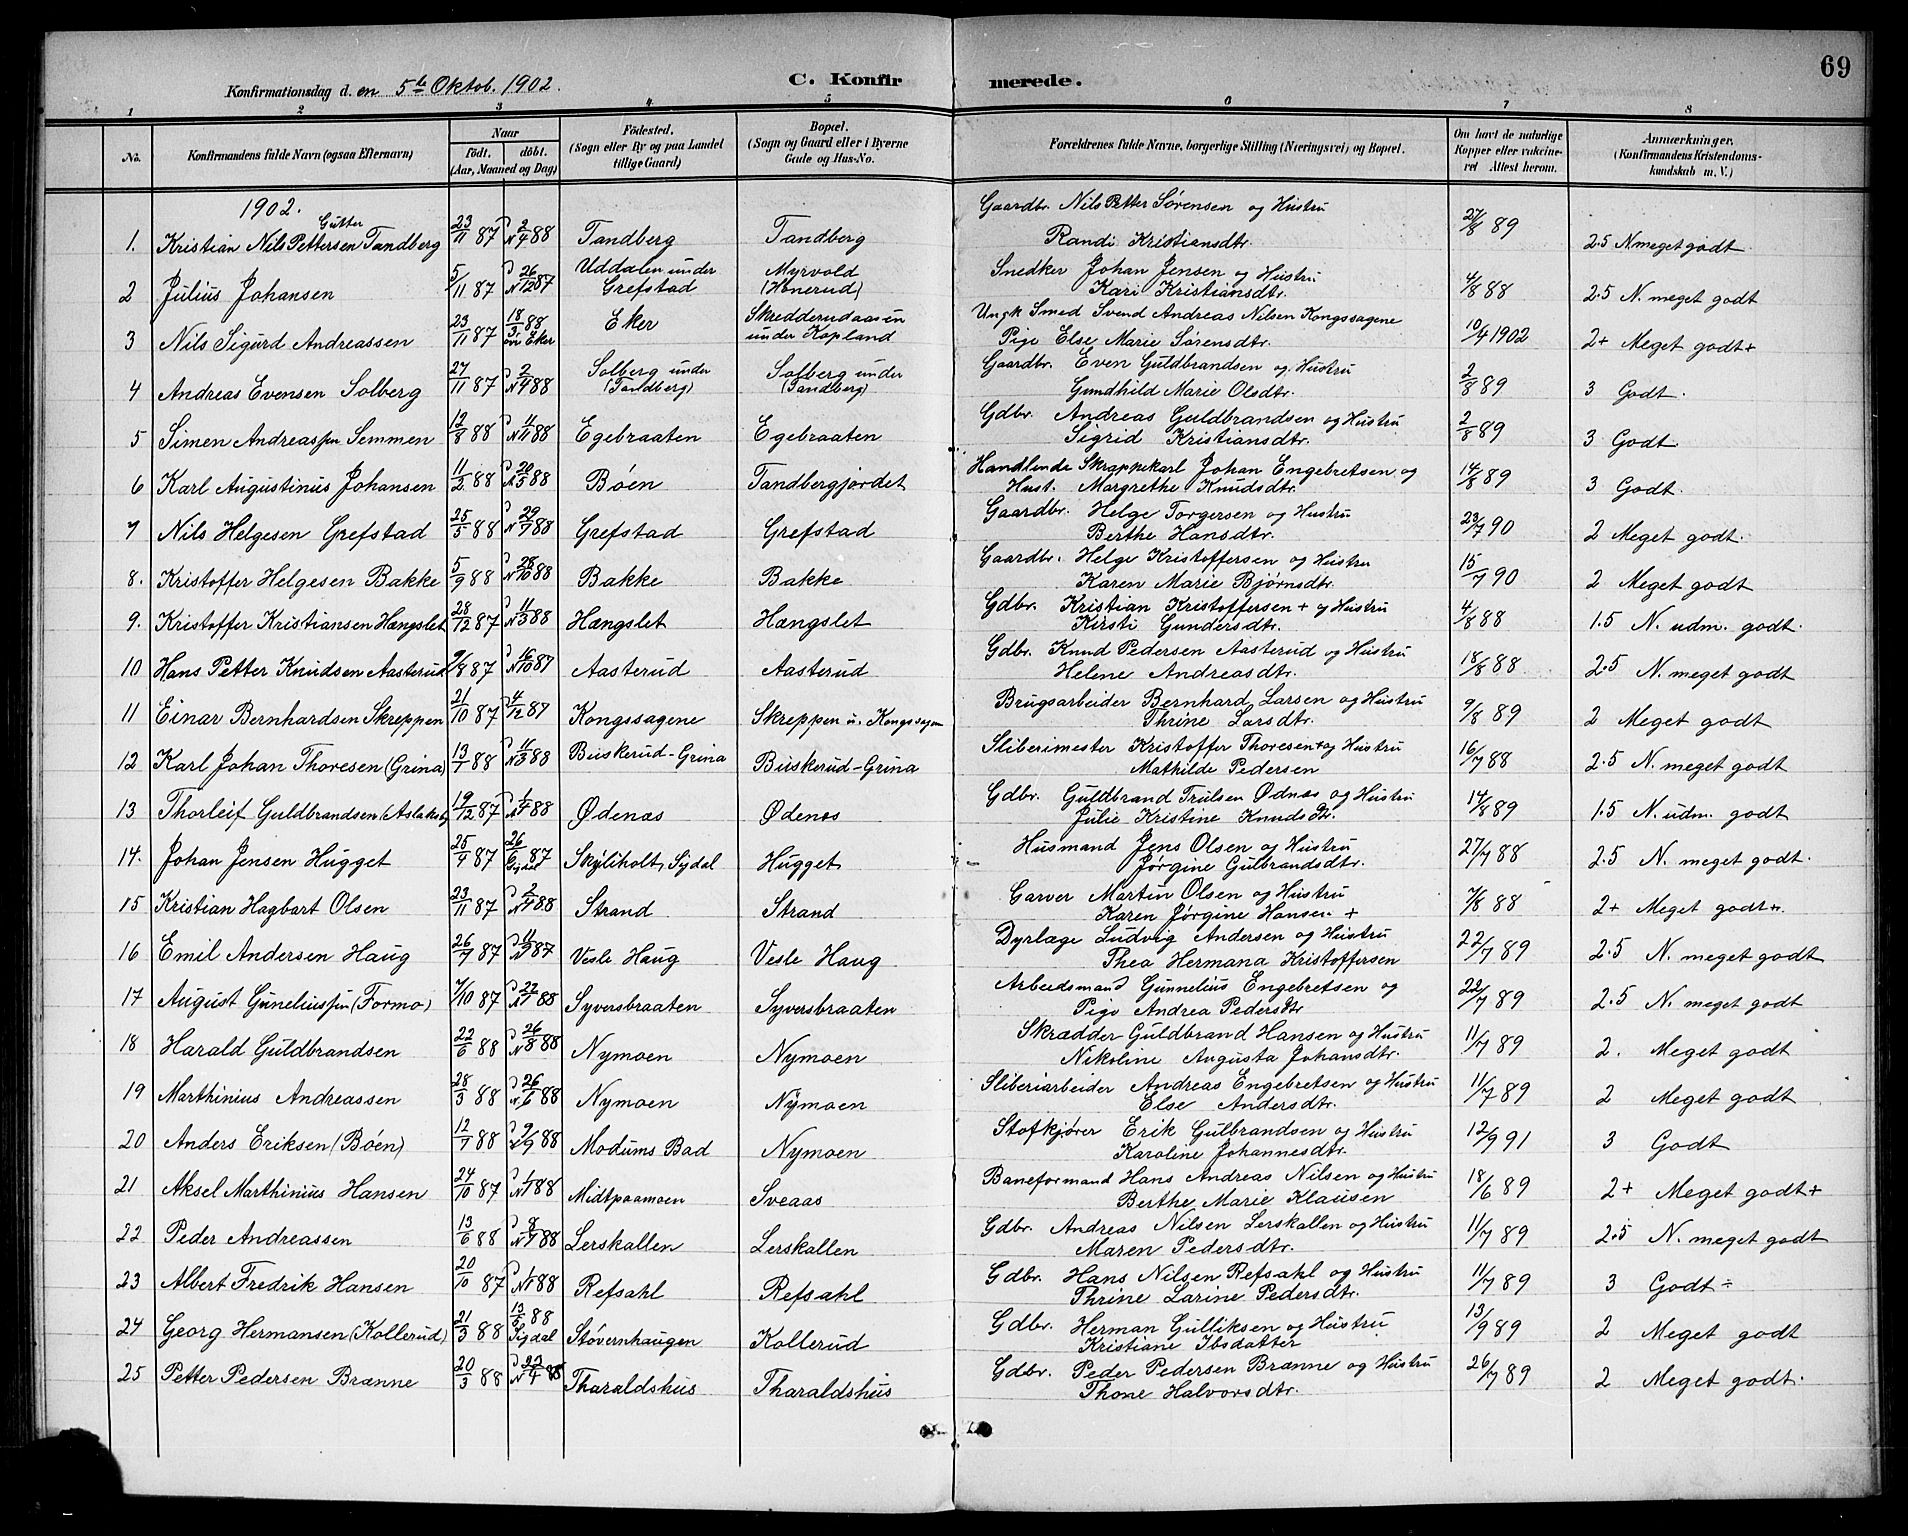 69
Konfirmationsdag d. en 5te Oktob. 1902. C. Konfirmerede.
1 2 3 4 5 6 7 8
No. Konfirmandens fulde Navn (ogsaa Efternavn) Naar født. døbt. (Aar, Maaned og Dag) Fødested. (Sogn eller By og paa Landet tillige Gaard) Bopæl. (Sogn og Gaard eller i Byerne Gade og Hus-No. Forældrenes fulde Navne, borgerlige Stilling (Næringsvei) og Bopæl. Om havt de naturlige Kopper eller vaccineret Attest herom. Anmærkninger. (Konfirmandens Kristendomskundskab m. V.)
1902.
Gutter
1. Kristian Nils Pettersen Tandberg 23/11 87 2/4 88 Tandberg Tandberg Gaardbr. Nils Petter Sørensen og Hustru Randi Kristiansdtr. 27/8 89 2.5 N meget godt
2 Julius Johansen 5/11 87 26/12 87 Uddalen under Grefstad Myrvold (Honerud) Snedker Johan Jensen og Hustru Kari Kristiansdtr. 4/8 88 2.5 N. meget godt
3 Nils Sigurd Andreassen 23/11 87 18/3 88 Eker Eker Skredderudaasen under Kopland Ungk Smed Svend Andreas Nilsen Kongssagene Pige Else Marie Sørensdtr. 10/4 1902 2+ Meget godt+
4 Andreas Evensen Solberg 27/11 87 2/4 88 Solberg under (Tandberg) Solberg under (Tandberg) Gaardbr. Even Guldbrandsen og Hustru Gundhild Marie Olsdtr. 2/8 89 3 Godt.
5 Simen Andreassen Semmen 12/8 88 N 4/11 88 Egebraaten Egebraaten Gdbr. Andreas Guldbrandsen og Hustru Sigrid Kristiansdtr. 2/8 89 3 Godt.
6 Karl Augustinus Johansen 11/2 88 20/5 88 Bøen Tandbergjordet Handlende Skrappekarl Johan Engebretsen og Hust. Margrethe Knudsdtr. 14/8 89 3 Godt.
7 Nils Helgesen Grefstad 25/5 88 29/7 88 Grefstad Grefstad Gaardbr. Helge Torgersen og Hustru Berthe Hansdtr. 23/7 90 2 Meget godt.
8. Kristoffer Helgesen Bakke 5/9 88 28/10 88 Bakke Bakke Gaardbr. Helge Kristoffersen og Hustru Karen Marie Bjørnsdtr. 15/7 90 2 Meget godt
9. Kristoffer Kristiansen Hængslet 28/12 87 11/3 88 Hængslet Hængslet Gdbr. Kristian Kristoffersen + og Hustru Kirsti Gundersdtr. 4/8 88 1.5 N. udm. godt.
10 Hans Petter Knudsen Aasterud 9/8 87 16/10 87 Aasterud Aasterud Gdbr. Knud Pedersen Aasterud og Hustru Helene Andreasdtr. 18/8 88 2.5 N. meget godt
11 Einar Bernhardsen Skreppen 21/10 87 4/12 87 Kongssagene Skreppen u. Kongssagene Brugsarbeider Bernhard Larsen og Hustru Thrine Larsdtr. 9/8 89 2 Meget godt
12 Karl Johan Thoresen (Grina) 13/1 88 11/3 88 Buskerud-Grina Buskerud-Grina Sliberimester Kristoffer Thoresen+og Hustru Mathilde Pedersen 16/7 88 2.5 N. meget godt
13 Thorleif Guldbrandsen (Aslaksby) 19/12 87 1/4 88 Ødenæs Ødenæs Gdbr. Guldbrand Trulsen Ødnæs og Hustru Julie Kristine Knudsdtr. 14/8 89 1.5 N. udm. godt
14. Johan Jensen Hugget 25/4 87 26/6 87 Sigdal Søyliholt, Sigdal Hugget Husmand Jens Olsen og Hustru Jørgine Gulbrandsdtr. 27/7 88 2.5 N. meget godt.
15 Kristian Hagbart Olsen 23/11 87 2/4 88 Strand Strand Garver Martin Olsen og Hustru Karen Jørgine Hansen + 7/8 88 2+ Meget godt+.
16 Emil Andersen Haug 26/7 87 11/9 87 Vesle Haug Vesle Haug Dyrlæge Ludvig Andersen og Hustru Thea Hermana Kristoffersen 22/7 89 2.5 N. meget godt
17 August Gunneliussen (Formo) 7/10 87 22/1 88 Syversbraaten Syversbraaten Arbeidsmand Gunnelius Engebretsen og Pige Andrea Pedersdtr 22/7 89 2.5 N. meget godt
18 Harald Guldbrandsen 22/6 88 26/8 88 Nymoen Nymoen Skrædder Guldbrand Hansen og Hustru Nikoline Augusta Johansdtr. 11/7 89 2. Meget godt
19 Marthinius Andreassen 28/3 88 26/6 88 Nymoen Nymoen Sliberiarbeider Andreas Engebretsen og Hustru Else Andersdtr. 11/7 89 2 Meget godt
20 Anders Eriksen (Bøen) 12/7 88 2/9 88 Modums Bad Nymoen Stofkjører Erik Gulbrandsen og Hustru Karoline Johannesdtr. 12/9 91 3 Godt
21 Aksel Marthinius Hansen 24/10 87 1/1 88 Midtpaamoen Sveaas Baneformand Hans Andreas Nilsen og Hustru Berthe Marie Klausen 18/6 89 2+ Meget godt+
22 Peder Andreassen 13/6 88 8/7 88 Lerskallen Lerskallen Gdbr. Andreas Nilsen Lerskallen og Hustru Maren Pedersdtr. 11/7 89 2.5 N. meget godt
23 Albert Fredrik Hansen 20/10 87 1/1 88 Refsahl Refsahl Gdbr. Hans Nilsen Refsahl og Hustru Thrine Larine Pedersdtr. 11/7 89 3 Godt÷
24 Georg Hermansen (Kollerud) 21/3 88 13/5 88 Sigdal Støvernhaugen Kollerud Gdbr. Herman Gulliksen og Hustru Kristiane Ibsdatter 13/9 89 2 Meget godt
25 Petter Pedersen Brænne 20/3 88 22/4 88 Tharaldshus Tharaldshus Gdbr. Peder Pedersen Brænne og Hustru Thone Halvorsdtr. 26/7 89 2 Meget godt.